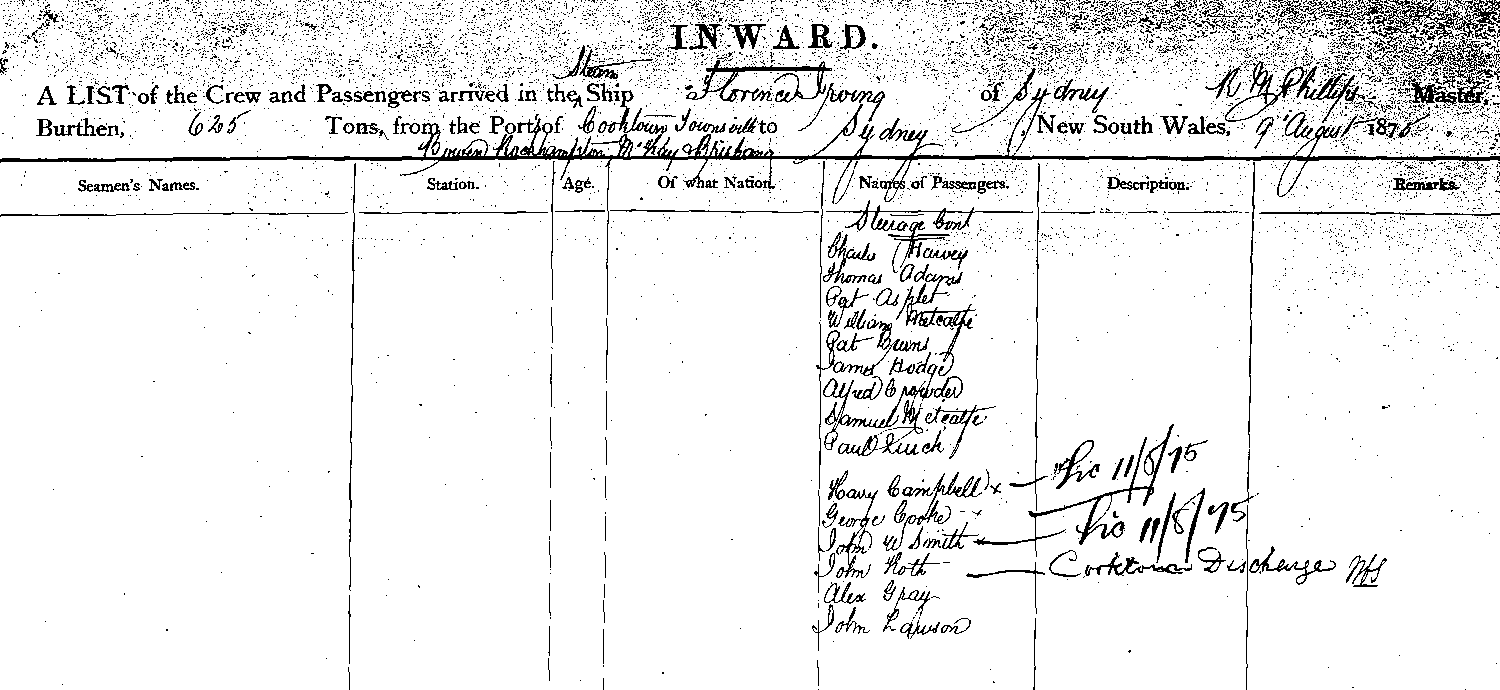 INWARD.
Steam
A LIST of the Crew and Passengers arrived in the Ship Florence Irving of Sydney R M Phillips Master,
Burthen, 625 Tons, from the Port of Cooktown Townsville to Sydney, New South Wales, 9 August 1875.
Bowen Rockhampton McKay & Brisbane
Seamen's Names. Station. Age. Of what Nation. Names of Passengers. Description. Remarks.
Steerage Cont
Charles Harvey
Thomas Adams
Pat Asplet
William Metcalfe
Pat Burns
James Hodge
Alfred Crowder
Samuel Metcalfe
Paul
Harry Campbell x — 11/8/75
George Cooke
John W Smith x — 11/8/75
John Roth — Cooktown Discharge
Alex Gray
John Lawson